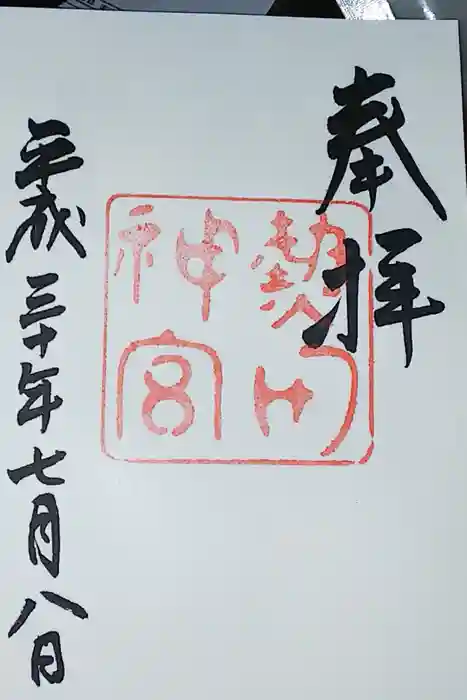 奉拝
熱田
神宮
平成三十年七月八日